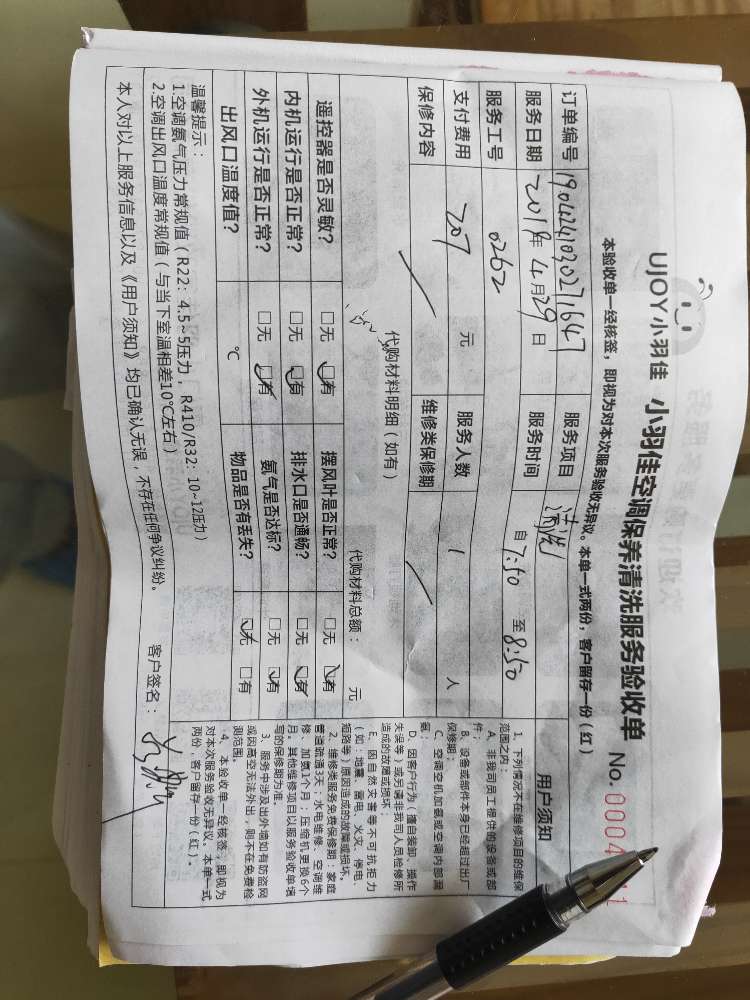 UJOY小羽佳 小羽佳空调保养清洗服务验收单 No.
本验收单一经核签，即视为对本次服务验收无异议。本单一式两份，客户留存一份（红）
订单编号 服务项目 清洗
服务日期 2019年4月29日 服务时间 自7:50 至8:50
服务工号 0262
支付费用 207 元 服务人数 1 人
保修内容 维修类保修期
代购材料明细（如有） 代购材料总额： 元
遥控器是否灵敏？ □无 □有 摆风叶是否正常？ □无 □有
内机运行是否正常？ □无 □有 排水口是否通畅？ □无 □有
外机运行是否正常？ □无 □有 氨气是否达标？ □无 □有
出风口温度值？ ℃ 物品是否有丢失？ □无 □有
温馨提示：
1.空调氨气压力常规值（R22：4.5~5压力，R410/R32：10~12压力）
2.空调出风口温度常规值（与当下室温相差10℃左右）
本人对以上服务信息以及《用户须知》均已确认无误，不存在任何争议纠纷。 客户签名：
用户须知
1、下列情况不在维修项目的维保
范围之内：
A、非我司员工提供的设备或部
件；
B、设备或部件本身已经超过出厂
保修期；
C、空调空机加氨或空调内部漏
氨；
D、因客户行为（擅自装卸、操作
失误等）或另请非我司人员检修所
造成的故障或损坏；
E、因自然灾害等不可抗拒力
（如：地震、雷电、火灾、停电、
短路等）原因造成的故障或损坏。
2、维修类服务免费保修期：家庭
管道疏通3天；水电维修、空调维
修、加氨1个月；压缩机更换6个
月。其他维修项目以服务验收单填
写的保修期为准。
3、服务中涉及出外墙如有防盗网
或因高空无法外出，则不在免费检
测范围。
4、本验收单一经核签，即视为
对本次服务验收无异议。本单一式
两份，客户留存一份（红）。